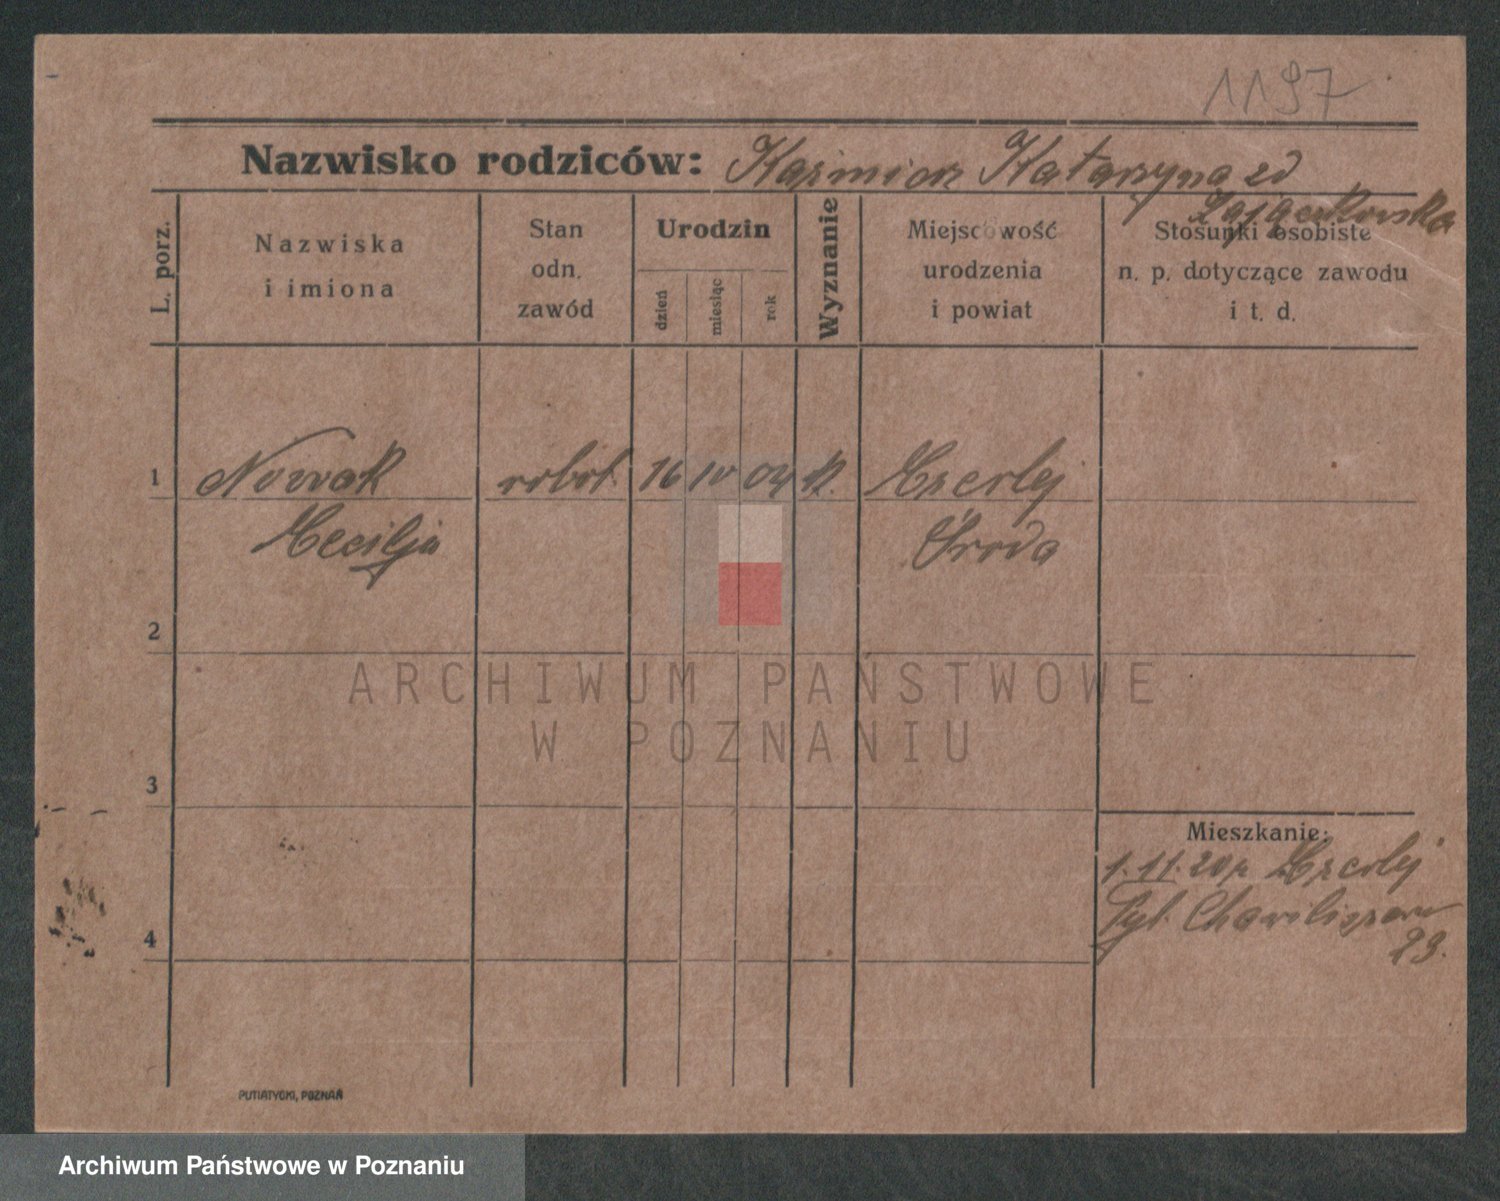 1197
Nazwisko rodziców: Kaźmierz Katarzyna zd
Zajączkowska
L. porz.
Nazwiska
i imiona
Stan
odn.
zawód
Urodzin
dzień
miesiąc
rok
Wyznanie
Miejscowość
urodzenia
i powiat
Stosunki osobiste
n. p. dotyczące zawodu
i t. d.
1 Nowak robot. 16 IV 04 k.
Cecilja Środa
2
3
4
Mieszkanie:
1.11.20
23.
PUTIATYCKI, POZNAŃ
ARCHIWUM PAŃSTWOWE
W POZNANIU
Archiwum Państwowe w Poznaniu